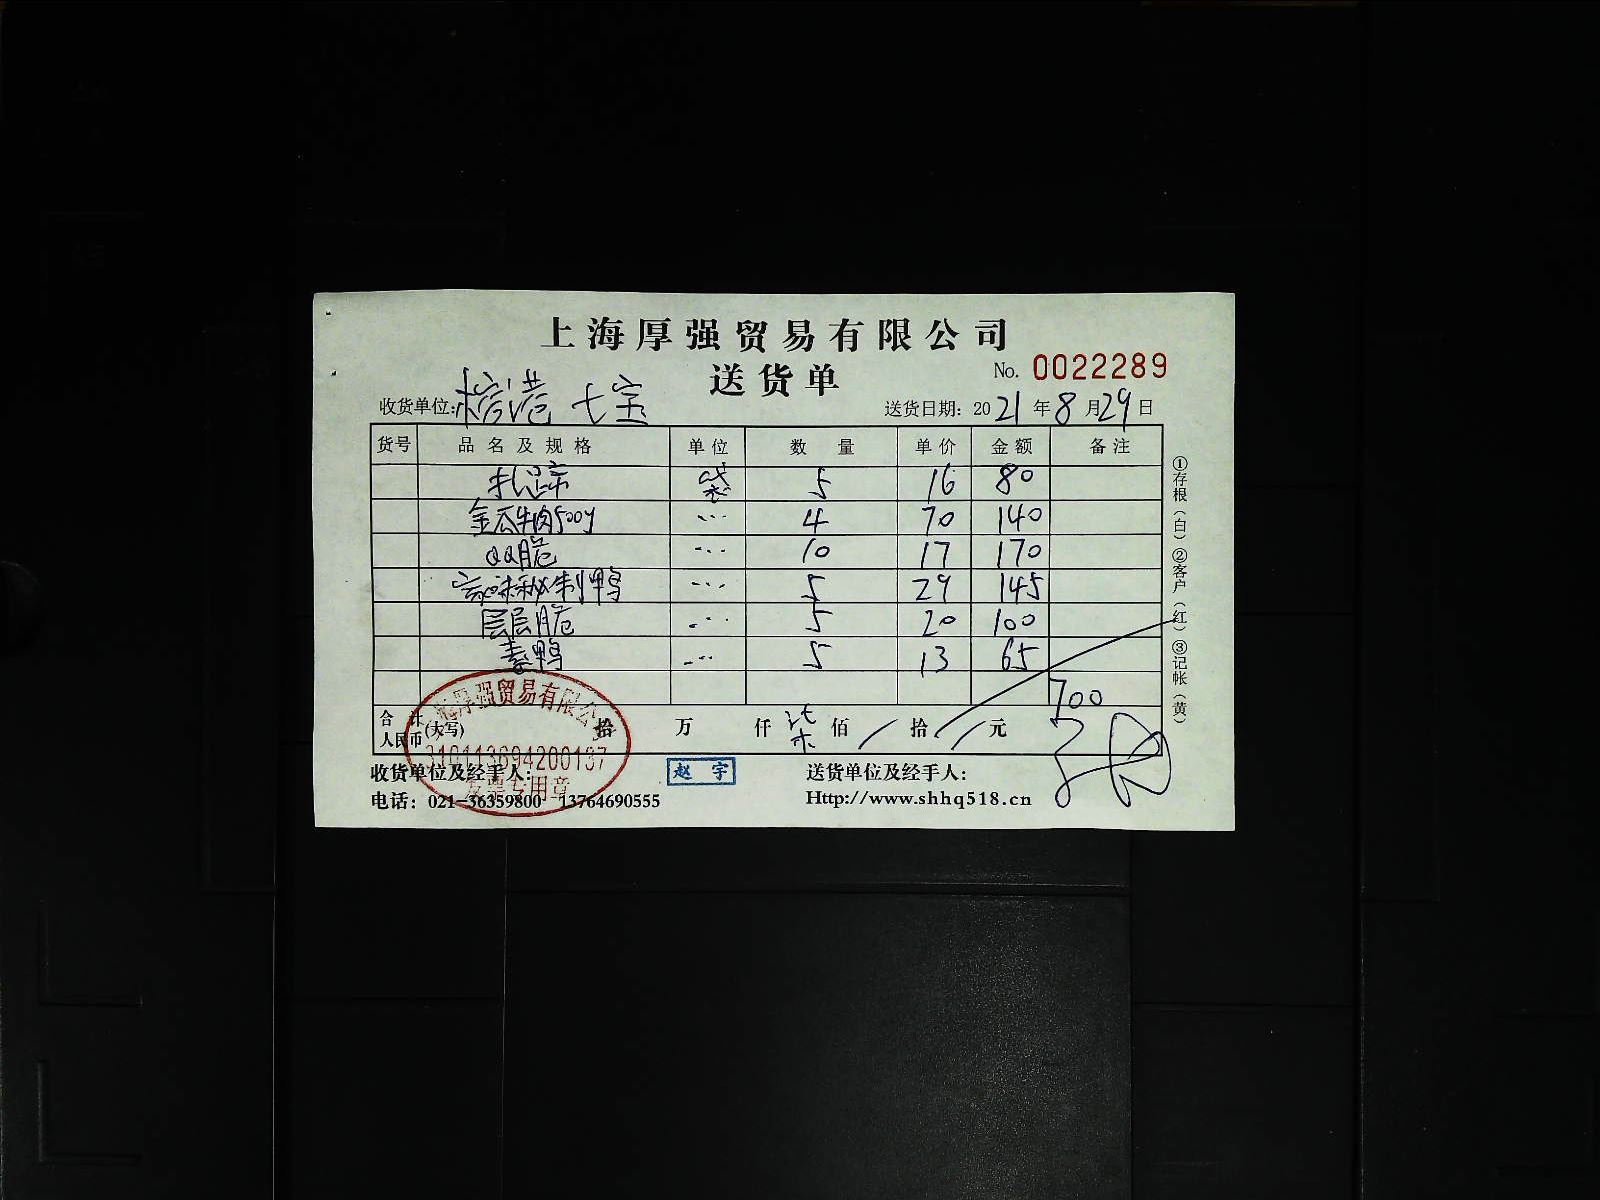 上海厚强贸易有限公司
送货单
No. 0022289
收货单位: 榕港 七宝
送货日期: 2021年8月29日
货号 品名及规格 单位 数量 单价 金额 备注
扎蹄 袋 5 16 80
金瓜牛肉500g 〃 4 70 140
QQ脆 〃 10 17 170
秘制鸭 〃 5 29 145
层层脆 〃 5 20 100
素鸭 〃 5 13 65
700
合计人民币(大写) 拾 万 仟 柒 佰 / 拾 / 元
上海厚强贸易有限公司
310113694200137
发票专用章
收货单位及经手人: 赵宇
送货单位及经手人:
电话: 021-36359800 13764690555
Http://www.shhq518.cn
①存根(白) ②客户(红) ③记帐(黄)